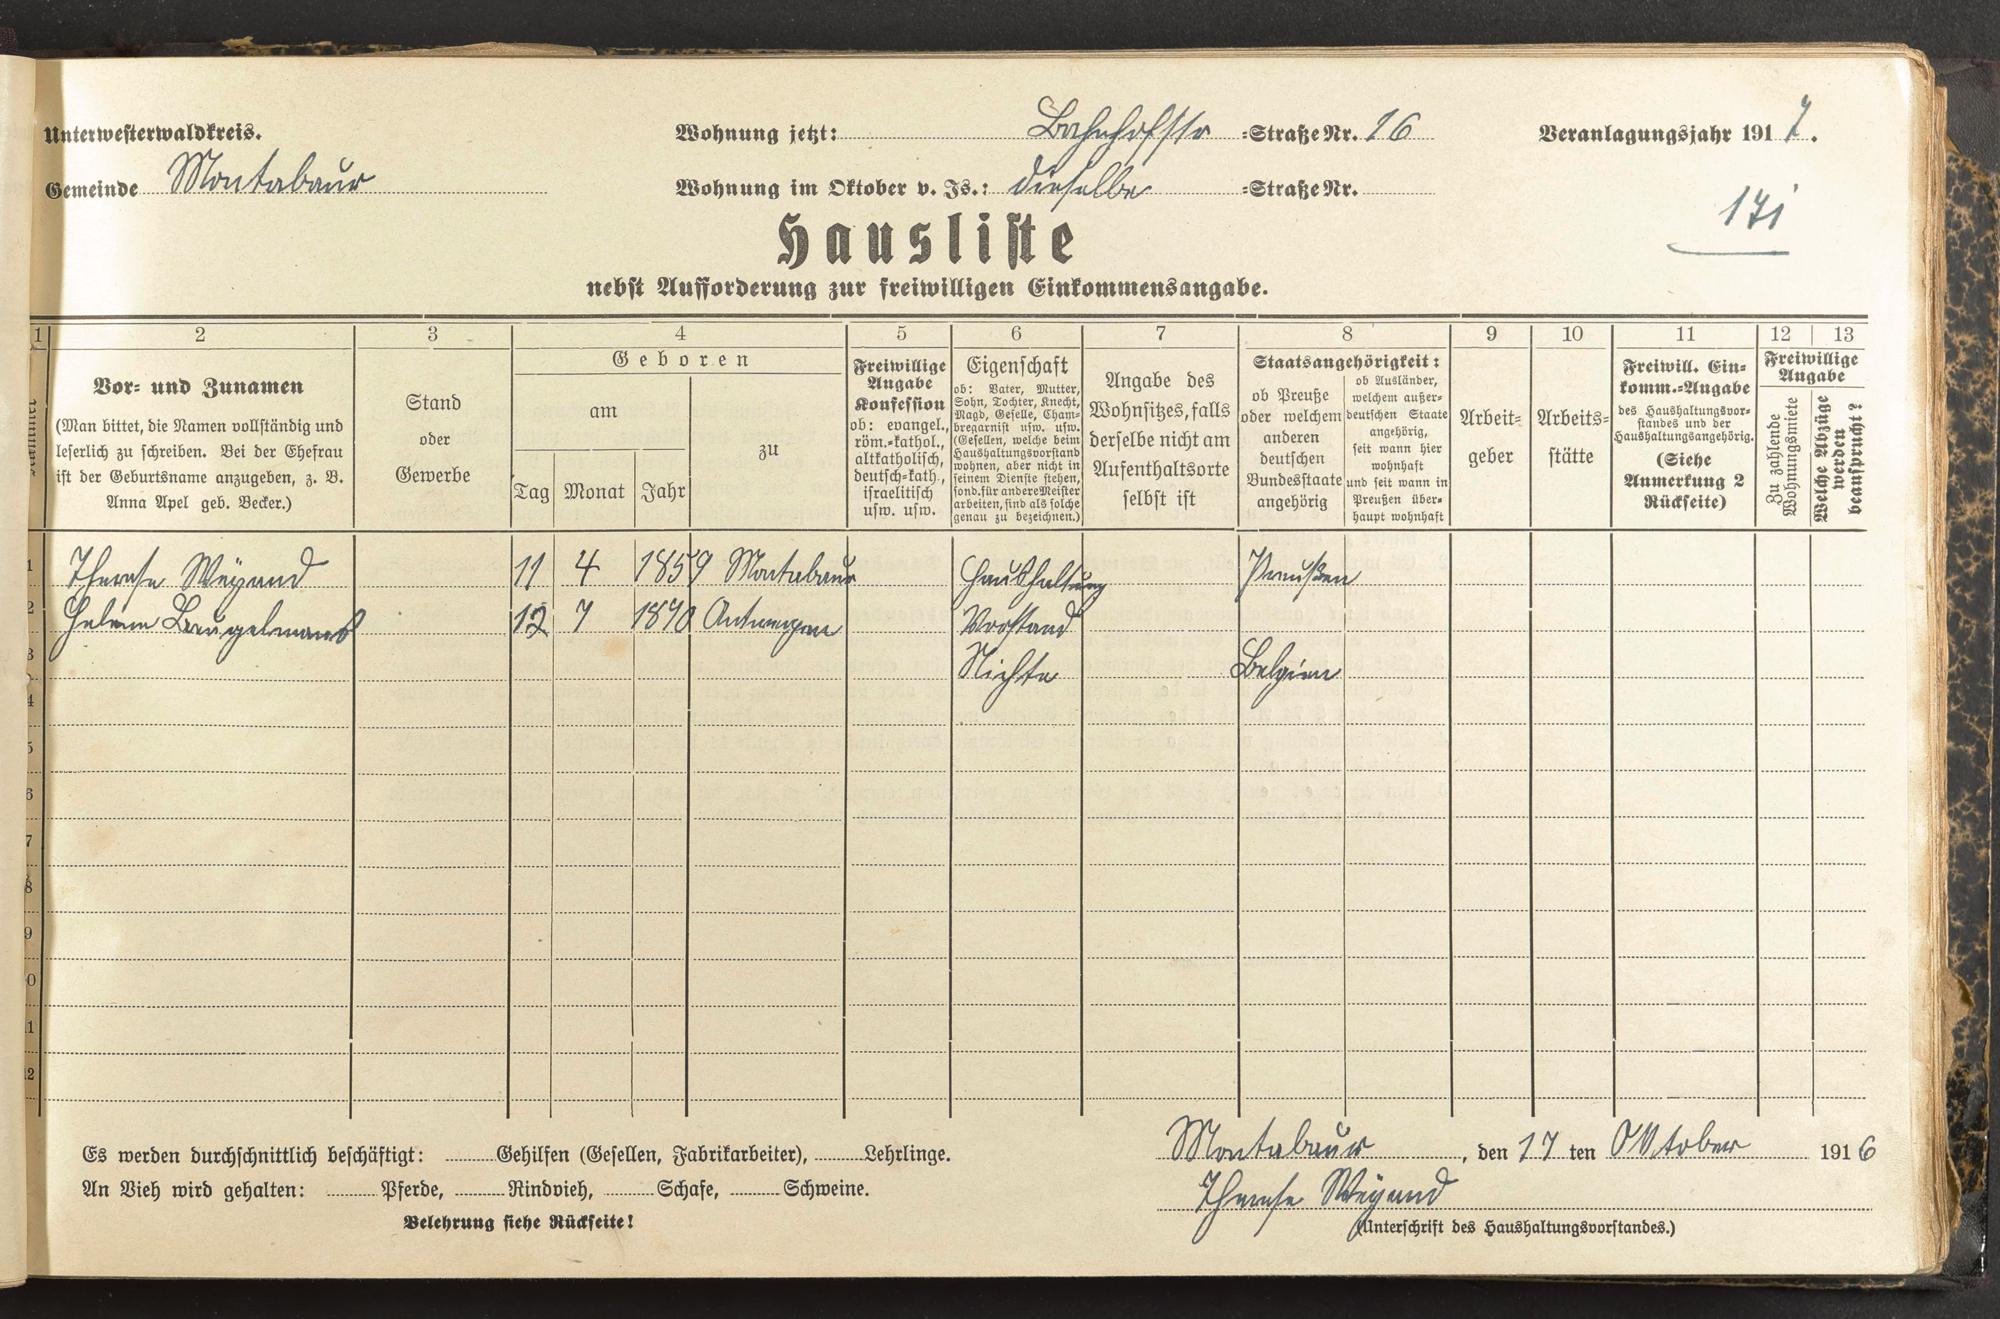 Unterwesterwaldkreis.
Gemeinde Montabaur
Wohnung jetzt: Bahnhofstr =Straße Nr. 16
Wohnung im Oktober v. Js.: dieselbe =Straße Nr.
Veranlagungsjahr 1917.
171
Hausliste
nebst Aufforderung zur freiwilligen Einkommensangabe.
1 2 3 4 5 6 7 8 9 10 11 12 13
Vor- und Zunamen
(Man bittet, die Namen vollständig und
leserlich zu schreiben. Bei der Ehefrau
ist der Geburtsname anzugeben, z. B.
Anna Apel geb. Becker.)
Stand
oder
Gewerbe
Geboren
am
Tag Monat Jahr
zu
Freiwillige
Angabe
Konfession
ob: evangel.,
röm.=kathol.,
altkatholisch,
deutsch=kath.,
israelitisch
usw. usw.
Eigenschaft
ob: Vater, Mutter,
Sohn, Tochter, Knecht,
Magd, Geselle, Cham-
bregarnist usw. usw.
(Gesellen, welche beim
Haushaltungsvorstand
wohnen, aber nicht in
seinem Dienste stehen,
sond. für andere Meister
arbeiten, sind als solche
genau zu bezeichnen.)
Angabe des
Wohnsitzes, falls
derselbe nicht am
Aufenthaltsorte
selbst ist
Staatsangehörigkeit:
ob Preuße
oder welchem
anderen
deutschen
Bundesstaate
angehörig
ob Ausländer,
welchem außer-
deutschen Staate
angehörig,
seit wann hier
wohnhaft
und seit wann in
Preußen über-
haupt wohnhaft
Arbeit-
geber
Arbeits-
stätte
Freiwill. Ein-
komm.=Angabe
des Haushaltungsvor-
standes und der
Haushaltungsangehörig.
(Siehe
Anmerkung 2
Rückseite)
Freiwillige
Angabe
Zu zahlende
Wohnungsmiete
Welche Abzüge
werden
beansprucht?
1 Therese Weyand 11 4 1859 Montabaur Haushaltung Preußen
2 Helene Beugelmans 12 7 1870 Antwerpen Vorstand
3 Nichte Belgien
4
5
6
7
8
9
10
11
12
Es werden durchschnittlich beschäftigt: Gehilfen (Gesellen, Fabrikarbeiter), Lehrlinge.
An Vieh wird gehalten: Pferde, Rindvieh, Schafe, Schweine.
Belehrung siehe Rückseite!
Montabaur, den 17 ten Oktober 1916
Therese Weyand
(Unterschrift des Haushaltungsvorstandes.)